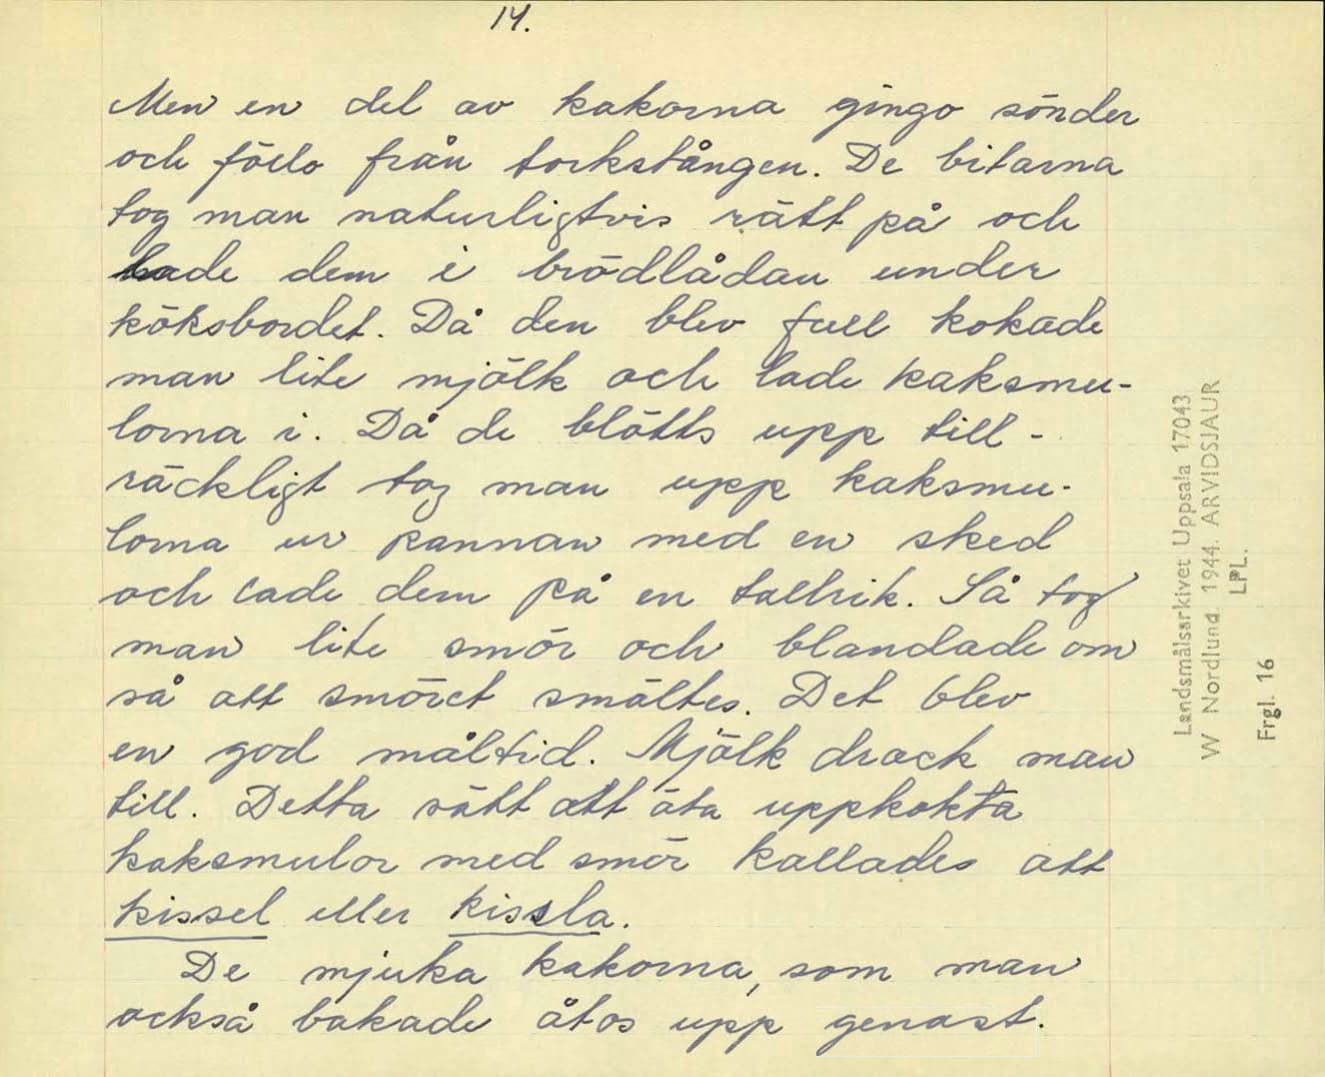 14.
Men en del av kakorna gingo sönder
och föllo från torkstången. De bitarna
tog man naturligtvis rätt på och
lade dem i brödlådan under
köksbordet. Då den blev full kokade
man lite mjölk och lade kaksmu-
lorna i. Då de blötts upp till-
räckligt tog man upp kaksmu-
lorna ur pannan med en sked
och lade dem på en tallrik. Så tog
man lite smör och blandade om
så att smöret smältes. Det blev
en god måltid. Mjölk drack man
till. Detta sätt att äta uppkokta
kaksmulor med smör kallades att
kissel eller kissla.
De mjuka kakorna, som man
också bakade åtos upp genast.
Landsmålsarkivet Uppsala 17043
W Nordlund. 1944. ARVIDSJAUR
LPL.
Frgl. 16